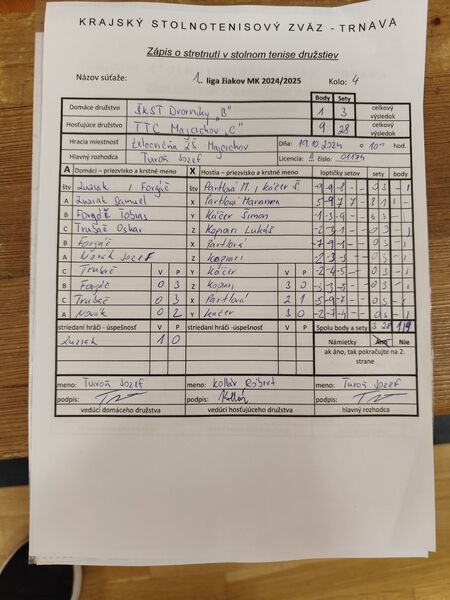 KRAJSKÝ STOLNOTENISOVÝ ZVÄZ - TRNAVA
Zápis o stretnutí v stolnom tenise družstiev
Názov súťaže: 1. liga žiakov MK 2024/2025 Kolo: 4
Body Sety
Domáce družstvo ŠKST Dvorníky "B" 1 3 celkový výsledok
Hosťujúce družstvo TTC Majcichov "C" 9 28 celkový výsledok
Hracia miestnosť telocvičňa ZŠ Majcichov Dňa: 19.10.2024 o 10 hod.
Hlavný rozhodca Turoň Jozef Licencia: číslo: 01174
A Domáci – priezvisko a krstné meno X Hostia – priezvisko a krstné meno loptičky setov sety body
štv Luziak, Forgáč štv Partlová M., Káčer Š. -9 -9 -8 0 3 - 1
A Luziak Samuel X Partlová Marianna
B Forgáč Tobias Y Káčer Šimon -1 -3 -9 0 3 - 1
C Trubač Oskar Z Kopiari Lukáš -2 -3 -1 0 3 - 1
B Forgáč X Partlová -7 -9 -1 0 3 - 1
A Novák Jozef Z Kopiari -2 -3 -3 0 3 - 1
C Trubač V P Y Káčer V P -2 -4 -5 0 3 - 1
B Forgáč 0 3 Z Kopiari 3 0 0 3 - 1
C Trubač 0 3 X Partlová 2 1 -5 -9 -7 0 3 - 1
A Novák 0 2 Y Káčer 3 0 -2 -7 -4 0 3 - 1
striedaní hráči - úspešnosť V P striedaní hráči -úspešnosť V P Spolu body a sety 3 28 1 9
Luziak 1 0 Námietky Áno Nie
ak áno, tak pokračujte na 2. strane
meno: Turoň Jozef meno: Kollár Róbert meno: Turoň Jozef
podpis: podpis: Kollár podpis:
vedúci domáceho družstva vedúci hosťujúceho družstva hlavný rozhodca